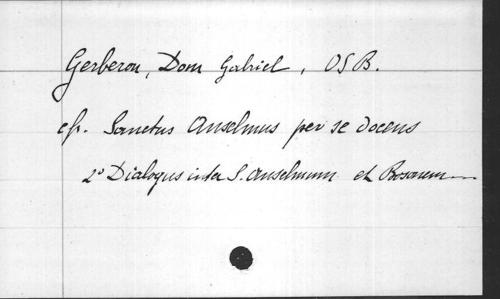 Gerberon, Dom Gabriel, OSB.
cfr. Sanctus Anselmus per se docens
2° Dialogus inter S. Anselmum et Bosonem